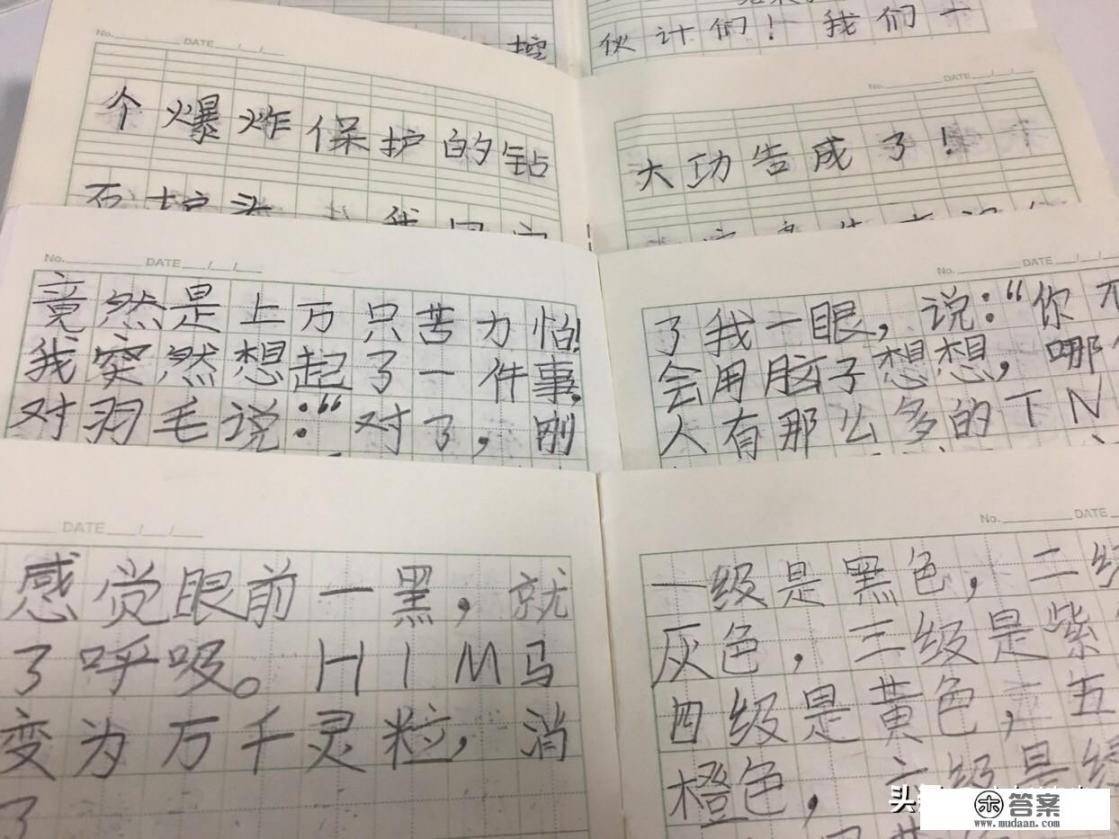 控
伙计们！我们一
No. DATE / /
个爆炸保护的钻
No. DATE / /
大功告成了！
No. DATE / /
竟然是上万只苦力怕！
我突然想起了一件事，
对羽毛说：“对了，刚
No. DATE / /
了我一眼，说：“你不
会用脑子想想，哪
人有那么多的TN
DATE / /
感觉眼前一黑，就
了呼吸。HIM马
变为万千灵粒，消
了
No. DATE
一级是黑色，二级
灰色，三级是紫
四级是黄色，五
橙色，六级是绿
头
答案
www.mudaan.com